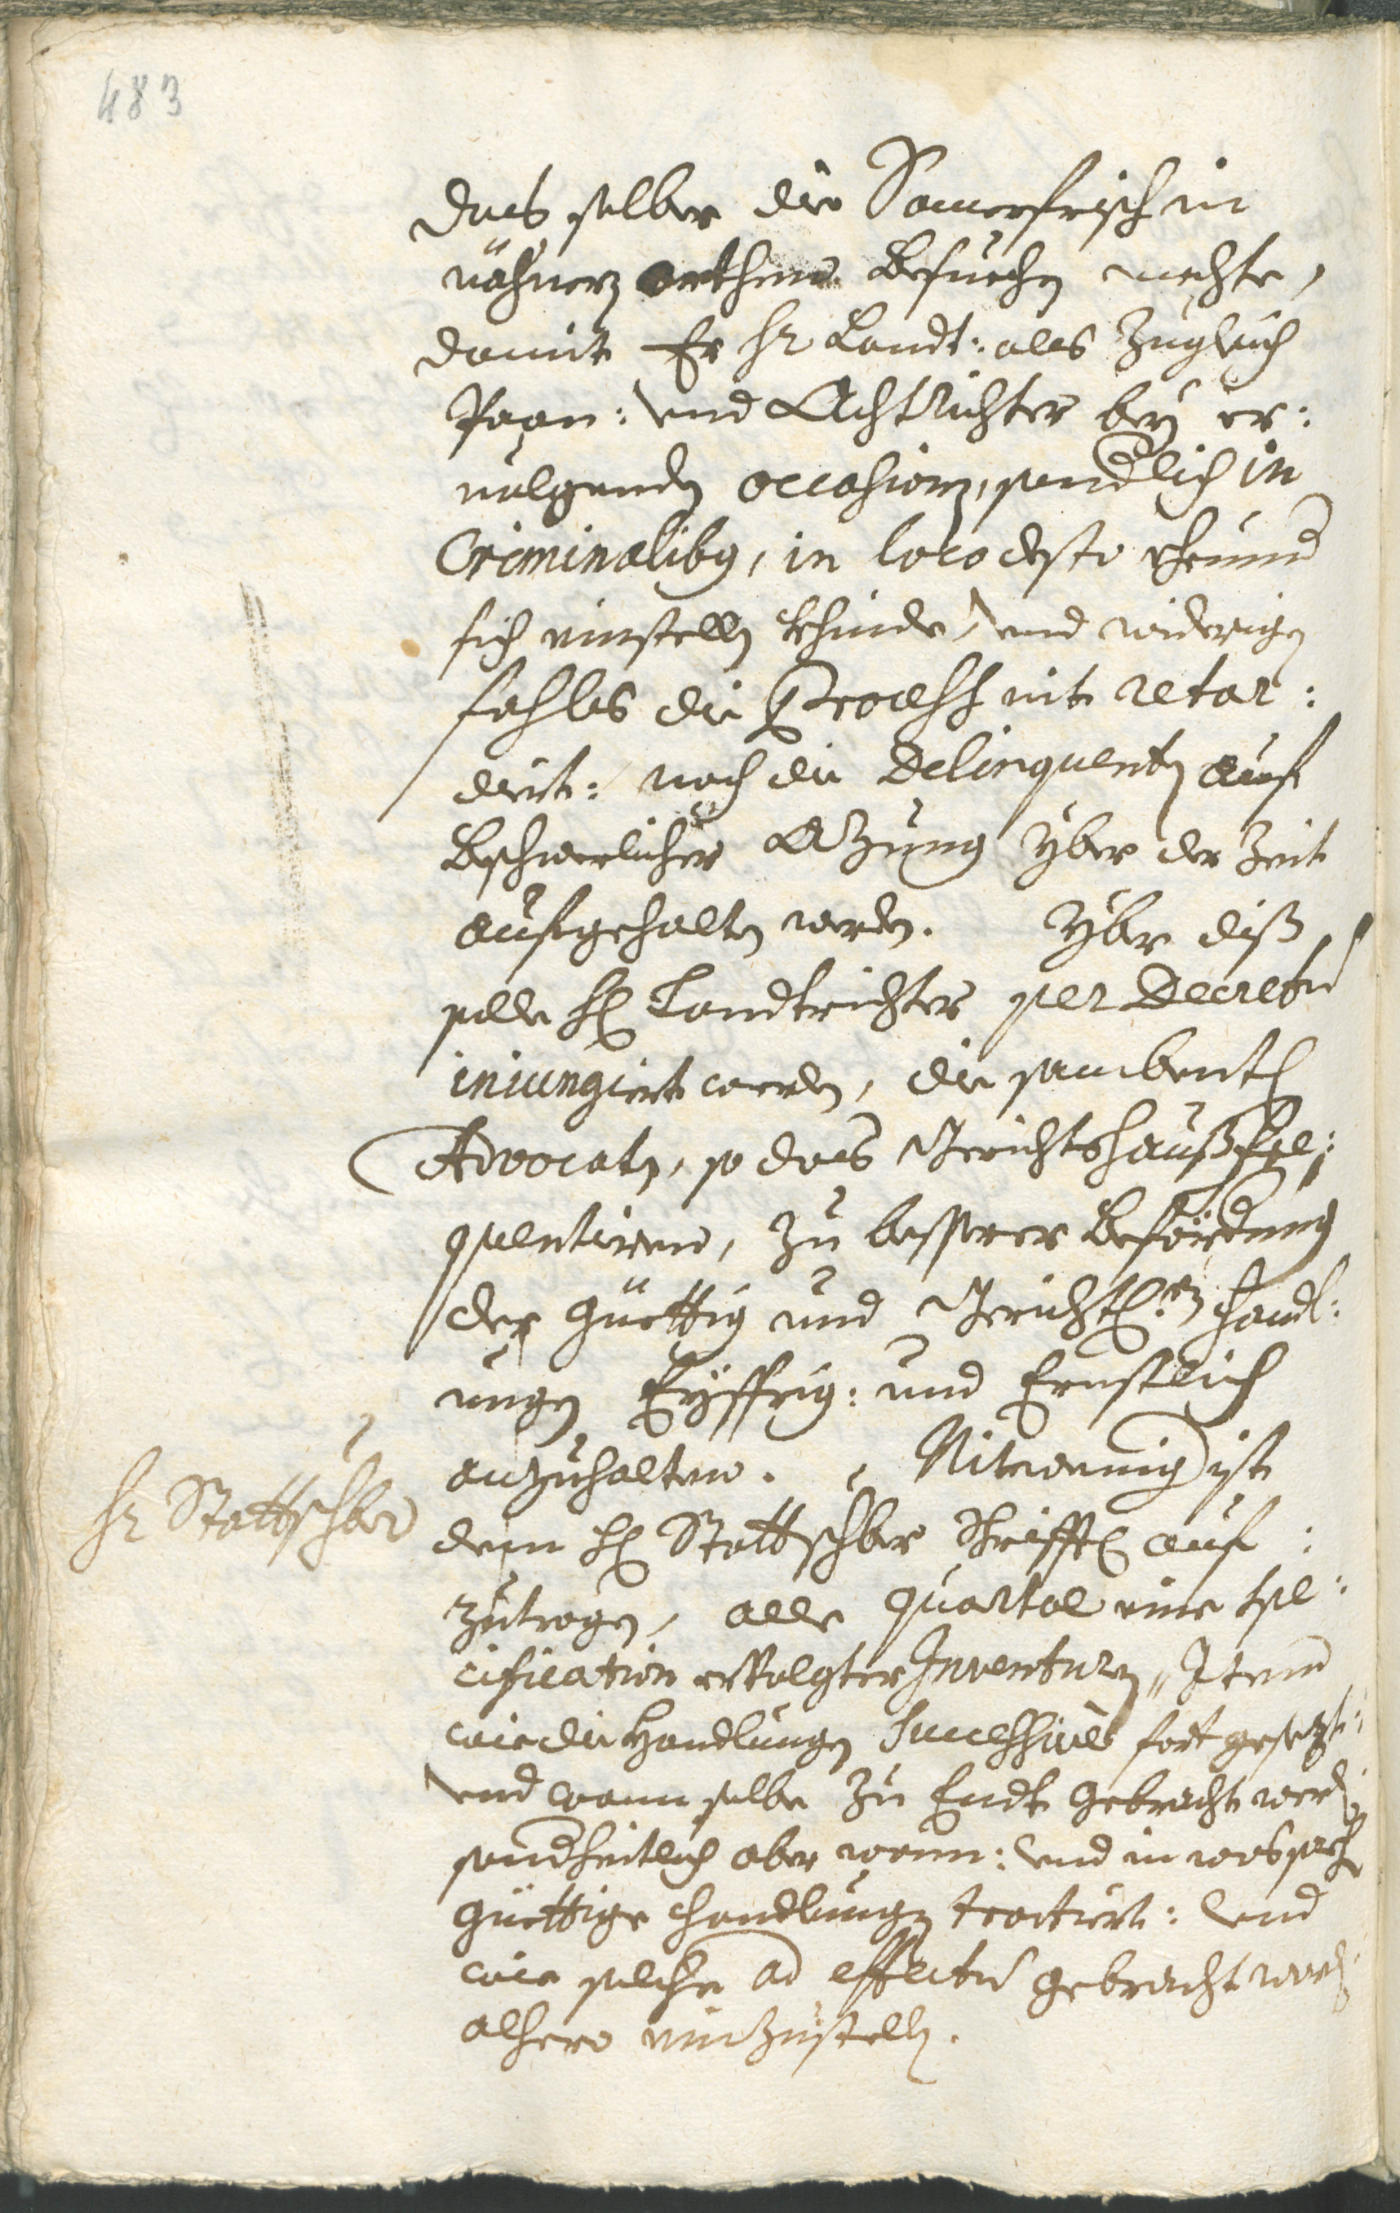 483
das selber die Somerfrisch in
nähnern orthen besuechen mechte,
damit Er hr Landt: als zugleich
Paan: und Achtrichter bey er:
uolgenden occasionen, sondlich in
Criminalibus, in loco desto
sich einstellen khinde, und widerigen
fahls die Process nit retar:
diert: noch die Delinquenten auf
beschwerlicher Azung yber der Zeit
aufgehalten werden. Yber diß
solle H Landtrichter per Decretum
iniungiert werden, die sambentl
Advocaten, so das Gerichtshauß fre:
quentiren, zu besserer beförderung
der güettig und Gerichtl.en handl:
ungen Eyffrig: und Ernstlich
anzuhalten. Nitwenig ist
hr Stattschber
dem H Stattschber schrifftl auf:
zutragen, alle quartal eine spe:
cification ervolgter Inventurn, Item
wie die Handlungen Successivè fort gesezt:
und wann selbe zu Endt gebracht werden
sondheitlich aber wann: und in was sach
güettige handlungen tractiert: und
wie solche ad effectum gebracht worden
alhero einzustellen.